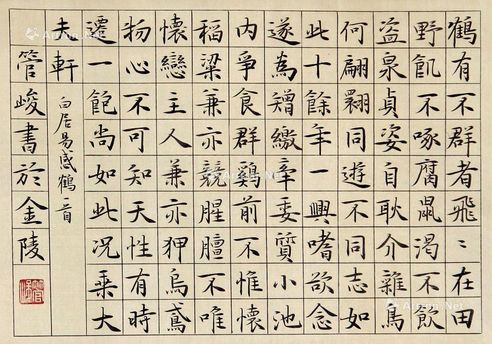 鶴有不群者飛〻在田
野飢不啄腐鼠渴不飲
盗泉貞姿自耿介雜鳥
何翩翾同遊不同志如
此十餘年一興嗜欲念
遂為矰繳牽委質小池
内爭食群鷄前不惟懷
稻粱兼亦競腥膻不唯
懷戀主人兼亦狎烏鳶
物心不可知天性有時
遷一飽尚如此況乘大
夫軒
白居易感鶴一首
管峻書於金陵